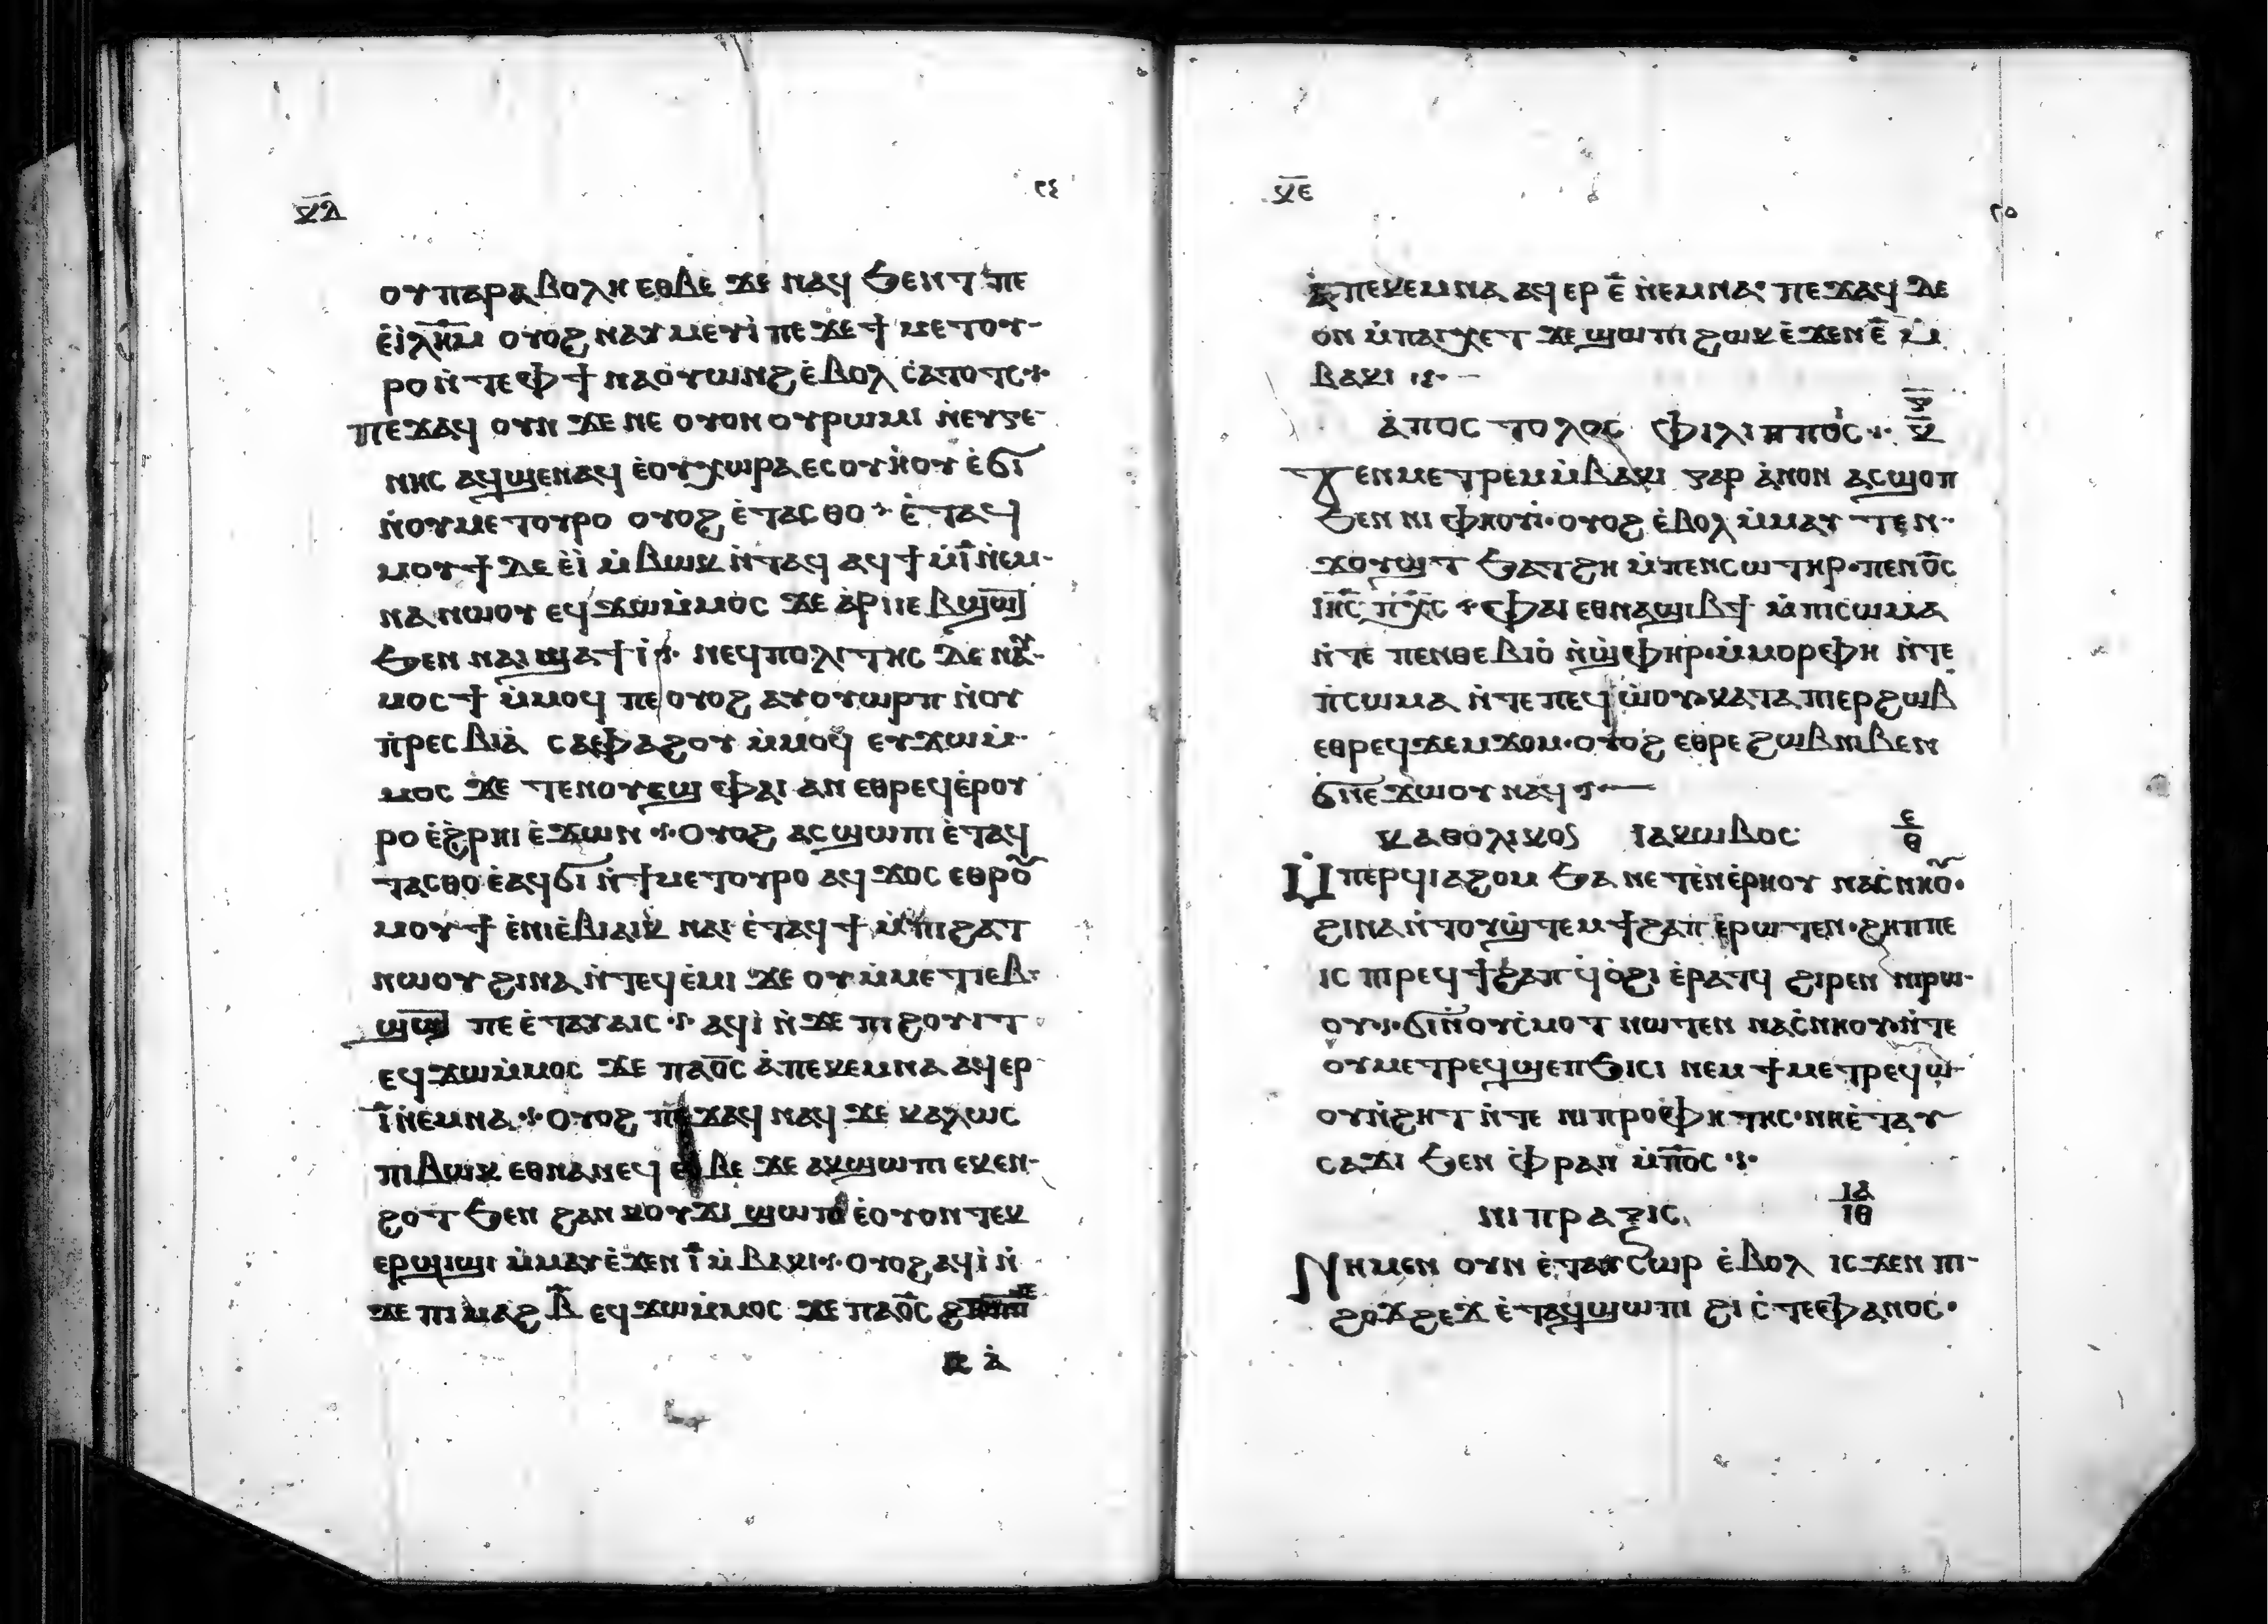 ⲕ̅ⲇ̅ ٢٤
ⲟⲩⲡⲁⲣⲁⲃⲟⲗⲏ ⲉⲑⲃⲉ ϫⲉ ⲛⲁϥ ϧⲉⲛⲧ ⲡⲉ
ⲉ̀ⲓ̀ⲗⲏ̅ⲙ̅ ⲟⲩⲟϩ ⲛⲁⲩⲙⲉⲩⲓ̀ ⲡⲉ ϫⲉ ϯ ⲙⲉⲧⲟⲩ-
ⲣⲟ ⲛ̀ⲧⲉⲫϯ ⲛⲁⲟ̀ⲩⲱⲛϩ ⲉ̀ⲃⲟⲗ ⲥ̀ⲁⲧⲟⲧⲥ·
ⲡⲉϫⲁϥ ⲟⲩⲛ ϫⲉ ⲛⲉ ⲟⲩⲟⲛ ⲟⲩⲣⲱⲙⲓ ⲛ̀ⲉⲩⲅⲉ-
ⲛⲏⲥ ⲁϥϣⲉⲛⲁϥ ⲉ̀ⲟⲩⲭⲱⲣⲁ ⲉⲥⲟⲩⲏ̀ⲟⲩ ⲉ̀ϭⲓ
ⲛ̀ⲟⲩⲙⲉⲧⲟⲩⲣⲟ ⲟⲩⲟϩ ⲉ̀ⲧⲁⲥⲑⲟ· ⲉ̀ⲧⲁϥ
ⲙⲟⲩϯ ⲇⲉ ⲉ̀ⲓ̀ ⲙ̀ⲃⲱⲕ ⲛ̀ⲧⲁϥ ⲁϥϯ ⲙ̀ⲓ̅ ⲛ̀ⲉⲙ-
ⲛⲁ ⲛⲱⲟⲩ ⲉϥϫⲱⲙ̀ⲙⲟⲥ ϫⲉ ⲁ̀ⲣⲓⲓⲉⲃϣⲱⲧ
ϧⲉⲛ ⲛⲁⲓ ϣⲁϯⲓ̀· ⲛⲉϥⲡⲟⲗⲓⲧⲏⲥ ⲇⲉ ⲛⲁⲩ-
ⲙⲟⲥϯ ⲙ̀ⲙⲟϥ ⲡⲉ ⲟⲩⲟϩ ⲁⲩⲟⲩⲱⲣⲡ ⲛ̀ⲟⲩ
ⲡ̀ⲣⲉⲥⲃⲓⲁ̀ ⲥⲁⲫⲁϩⲟⲩ ⲙ̀ⲙⲟϥ ⲉⲩϫⲱⲙ̀-
ⲙⲟⲥ ϫⲉ ⲧⲉⲛⲟⲩⲉϣ ⲫⲁⲓ ⲁⲛ ⲉⲑⲣⲉϥⲉ̀ⲣⲟⲩ
ⲣⲟ ⲉ̀ϩ̀ⲣⲏⲓ ⲉ̀ϫⲱⲛ· ⲟⲩⲟϩ ⲁⲥϣⲱⲡⲓ ⲉ̀ⲧⲁϥ
ⲧⲁⲥⲑⲟ ⲉ̀ⲁϥϭⲓ ⲛ̀ϯⲙⲉⲧⲟⲩⲣⲟ ⲁϥϫⲟⲥ ⲉⲑⲣⲟⲩ
ⲙⲟⲩϯ ⲉ̀ⲛⲓⲉ̀ⲃⲓⲁⲓⲕ ⲛⲁⲓ ⲉ̀ⲧⲁϥϯ ⲙ̀ⲡⲓϩⲁⲧ
ⲛⲱⲟⲩ ϩⲓⲛⲁ ⲛ̀ⲧⲉϥⲉ̀ⲙⲓ ϫⲉ ⲟⲩ ⲙ̀ⲙⲉⲧⲓⲉⲃ-
ϣⲱⲧ ⲡⲉ ⲉ̀ⲧⲁⲩⲁⲓⲥ· ⲁϥⲓ̀ ⲛ̀ϫⲉ ⲡⲓϩⲟⲩⲓⲧ
ⲉϥϫⲱⲙ̀ⲙⲟⲥ ϫⲉ ⲡⲁⲟ̅ⲥ̅ ⲁ̀ⲡⲉⲕⲉⲙⲛⲁ ⲁϥⲉⲣ-
ⲓ̅ ⲛ̀ⲉⲙⲛⲁ· ⲟⲩⲟϩ ⲡⲉϫⲁϥ ⲛⲁϥ ϫⲉ ⲕⲁⲗⲱⲥ
ⲡⲓⲃⲱⲕ ⲉⲑⲛⲁⲛⲉϥ ⲉⲑⲃⲉ ϫⲉ ⲁⲕϣⲱⲡⲓ ⲉⲕⲉⲛ-
ϩⲟⲧ ϧⲉⲛ ϩⲁⲛ ⲕⲟⲩϫⲓ ϣⲱⲡⲓ ⲉ̀ⲟⲩⲟⲛⲧⲉⲕ
ⲉⲣϣⲓϣⲓ ⲙ̀ⲙⲁⲩ ⲉ̀ϫⲉⲛ ⲓ̅ ⲙ̀ⲃⲁⲕⲓ· ⲟⲩⲟϩ ⲁϥⲓ̀ ⲛ̀
ϫⲉ ⲡⲓⲙⲁϩⲃ̅ ⲉϥϫⲱⲙ̀ⲙⲟⲥ ϫⲉ ⲡⲁⲟ̅ⲥ̅
ⲁ̀
ⲕ̅ⲉ̅ ٢٥
ⲁ̀ⲡⲉⲕⲉⲙⲛⲁ ⲁϥⲉⲣ ⲉ̅ ⲛ̀ⲉⲙⲛⲁ· ⲡⲉϫⲁϥ ⲇⲉ
ⲟⲛ ⲙ̀ⲡⲁⲓⲭⲉⲧ ϫⲉ ϣⲱⲡⲓ ϩⲱⲕ ⲉ̀ϫⲉⲛ ⲉ̅ ⲙ̀
ⲃⲁⲕⲓ
ⲁ̀ⲡⲟⲥⲧⲟⲗⲟⲥ ⲫⲓⲗⲓⲡⲡⲟⲥ· ⲕ̅
ⲧⲉⲛⲙⲉⲧⲣⲉⲙⲙ̀ⲃⲁⲕⲓ ⲅⲁⲣ ⲁ̀ⲛⲟⲛ ⲁⲥϣⲟⲡ
ϧⲉⲛ ⲛⲓⲫⲏⲟⲩⲓ̀· ⲟⲩⲟϩ ⲉ̀ⲃⲟⲗ ⲙ̀ⲙⲁⲩ ⲧⲉⲛ-
ϫⲟⲩϣⲧ ϧⲁⲧϩⲏ ⲙ̀ⲡⲉⲛⲥⲱⲧⲏⲣ· ⲡⲉⲛⲟ̅ⲥ̅
ⲓⲏ̅ⲥ̅ ⲡⲭ̅ⲥ̅· ⲫⲁⲓ ⲉⲑⲛⲁϣⲓⲃϯ ⲙ̀ⲡⲓⲥⲱⲙⲁ
ⲛ̀ⲧⲉ ⲡⲉⲛⲑⲉⲃⲓⲟ̀ ⲛ̀ϣ̀ⲫⲏⲣ· ⲙ̀ⲙⲟⲣⲫⲏ ⲛ̀ⲧⲉ
ⲡ̀ⲥⲱⲙⲁ ⲛ̀ⲧⲉ ⲡⲉϥⲱ̀ⲟⲩ· ⲕⲁⲧⲁ ⲡⲓⲉⲣϩⲱⲃ
ⲉⲑⲣⲉϥϫⲉⲙϫⲟⲙ· ⲟⲩⲟϩ ⲉⲑⲣⲉ ϩⲱⲃ ⲛⲓⲃⲉⲛ
ϭⲛⲉϫⲱⲟⲩ ⲛⲁϥ
ⲕⲁⲑⲟⲗⲓⲕⲟⲥ ⲓⲁⲕⲱⲃⲟⲥ ⲉ ⲑ
ⲙ̀ⲡⲉⲣϥⲓⲁϩⲟⲙ ϧⲁ ⲛⲉⲧⲉⲛⲉ̀ⲣⲏⲟⲩ ⲛⲁⲥ̀ⲛⲏⲟⲩ·
ϩⲓⲛⲁ ⲛ̀ⲧⲟⲩϣ̀ⲧⲉⲙϯϩⲁⲡ ⲉ̀ⲣⲱⲧⲉⲛ· ϩⲏⲡⲡⲉ
ⲓⲥ ⲡⲓⲣⲉϥϯϩⲁⲡ ϥ̀ⲟ̀ϩⲓ ⲉ̀ⲣⲁⲧϥ ϩⲓⲣⲉⲛ ⲛⲓⲣⲱ-
ⲟⲩ· ϭⲓⲛ̀ⲟⲩⲥ̀ⲙⲟⲧ ⲛⲱⲧⲉⲛ ⲛⲁⲥ̀ⲛⲏⲟⲩ· ⲛ̀ⲧⲉ
ⲟⲩⲙⲉⲧⲣⲉϥϣⲉⲡϧⲓⲥⲓ ⲛⲉⲙ ϯⲙⲉⲧⲣⲉϥⲱ-
ⲟⲩⲛ̀ϩⲏⲧ ⲛ̀ⲧⲉ ⲛⲓⲡⲣⲟⲫⲏⲧⲏⲥ· ⲛⲏⲉ̀ⲧⲁⲩ
ⲥⲁϫⲓ ϧⲉⲛ ⲫ̀ⲣⲁⲛ ⲙ̀ⲡⲟ̅ⲥ̅
ⲛⲓⲡⲣⲁⲝⲓⲥ ⲓⲁ ⲓⲑ
ⲛⲏⲙⲉⲛ ⲟⲩⲛ ⲉ̀ⲧⲁⲩⲥⲱⲣ ⲉ̀ⲃⲟⲗ ⲓⲥϫⲉⲛ ⲡⲓ-
ϩⲟϫϩⲉϫ ⲉ̀ⲧⲁϥϣⲱⲡⲓ ϩⲓ ⲥ̀ⲧⲉⲫⲁⲛⲟⲥ·